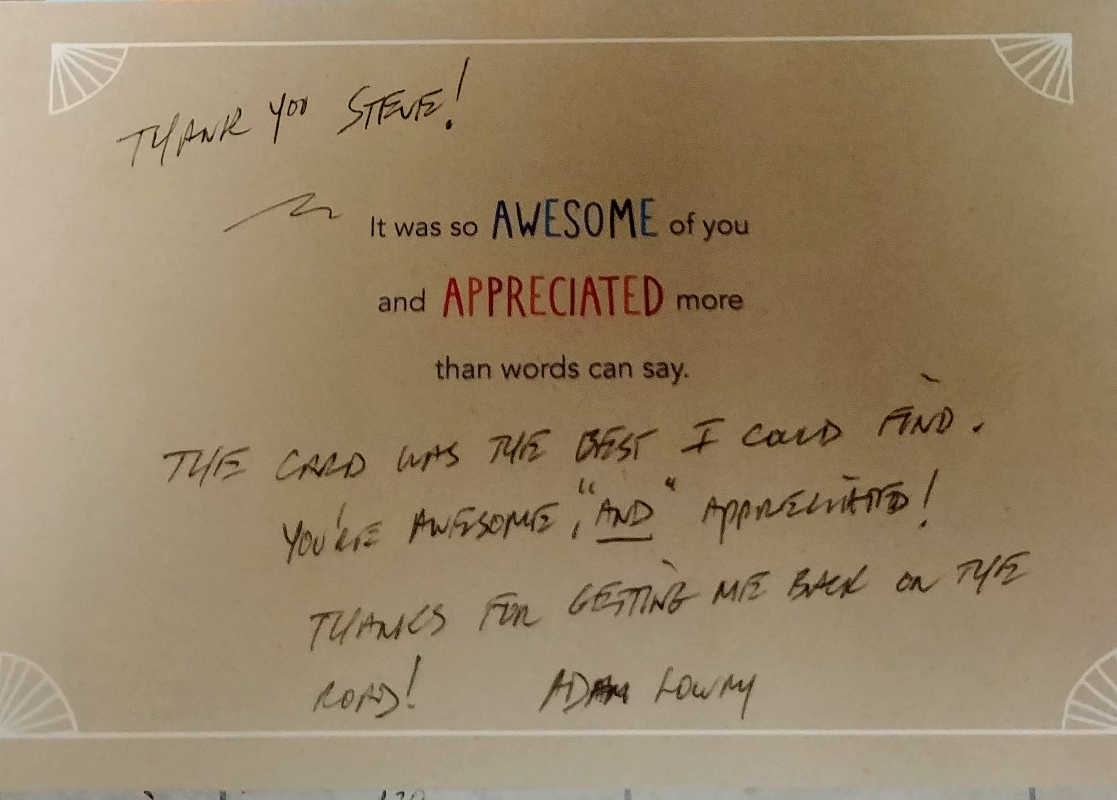 THANK YOU STEVE!
It was so AWESOME of you
and APPRECIATED more
than words can say.
THE CARD WAS THE BEST I COULD FIND.
YOU'RE AWESOME, "AND" APPRECIATED!
THANKS FOR GETTING ME BACK ON THE
ROAD! ADAM LOWRY